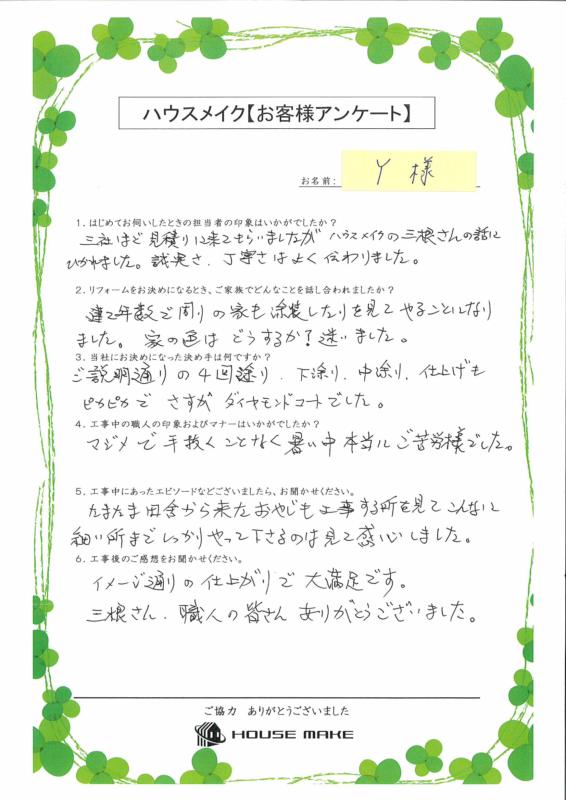 ハウスメイク【お客様アンケート】
お名前: Y 様
1. はじめてお伺いしたときの担当者の印象はいかがでしたか?
三社ほど見積りに来てもらいましたが ハウスメイクの三根さんの話に
ひかれました。誠実さ、丁寧さはよく伝わりました。
2. リフォームをお決めになるとき、ご家族でどんなことを話し合われましたか?
建て年数で周りの家も塗装したりを見て やることになり
ました。家の色は どうするか?迷いました。
3. 当社にお決めになった決め手は何ですか?
ご説明通りの4回塗り、下塗り、中塗り、仕上げも
ピカピカで さすが ダイヤモンドコートでした。
4. 工事中の職人の印象およびマナーはいかがでしたか?
マジメで手抜くことなく暑い中本当にご苦労様でした。
5. 工事中にあったエピソードなどございましたら、お聞かせください。
たまたま田舎から来たおやじも工事する所を見てこんなに
細い所までしっかりやって下さるのは見て感心しました。
6. 工事後のご感想をお聞かせください。
イメージ通りの仕上がりで 大満足です。
三根さん、職人の皆さん ありがとうございました。
ご協力 ありがとうございました
HOUSE MAKE